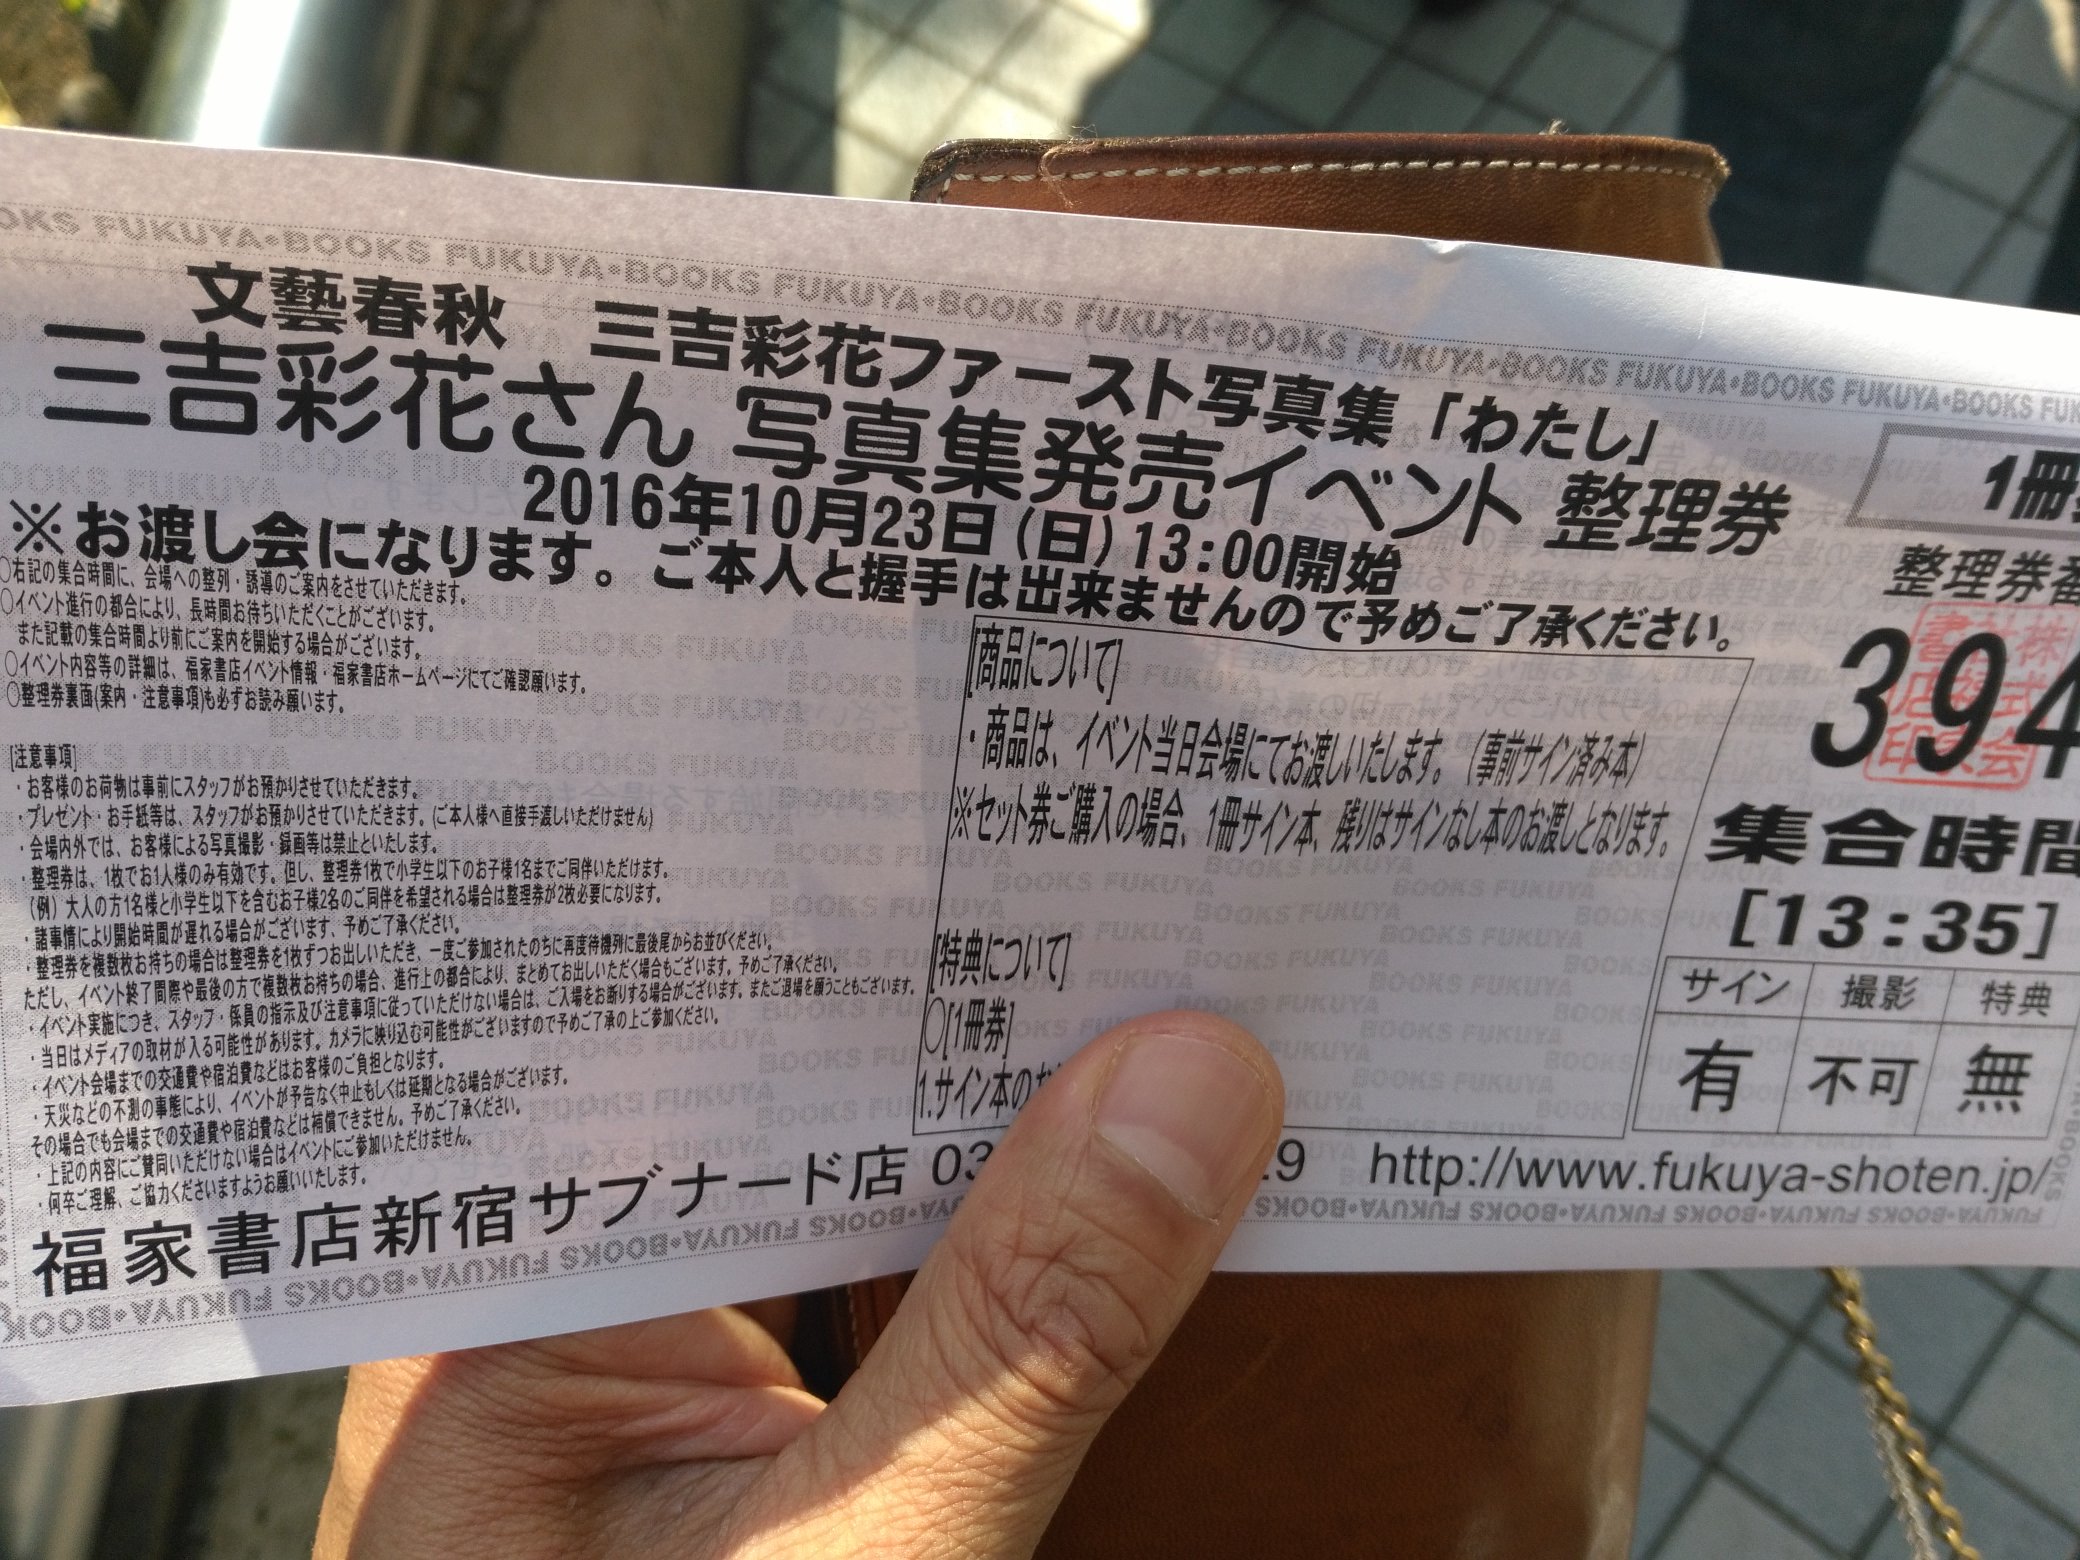 BOOKS FUKUYA・BOOKS FUKUYA・BOOKS FUKUYA・BOOKS FUKUYA・BOOKS FUKUYA・BOOKS FUKUYA・BOOKS FUKUYA・BOOKS
文藝春秋 三吉彩花ファースト写真集「わたし」
三吉彩花さん 写真集発売イベント 整理券
2016年10月23日(日)13:00開始
※お渡し会になります。ご本人と握手は出来ませんので予めご了承ください。
○右記の集合時間に、会場への整列・誘導のご案内をさせていただきます。
○イベント進行の都合により、長時間お待ちいただくことがございます。
また記載の集合時間より前にご案内を開始する場合がございます。
○イベント内容等の詳細は、福家書店イベント情報・福家書店ホームページにてご確認願います。
○整理券裏面(案内・注意事項)も必ずお読み願います。
[注意事項]
・お客様のお荷物は事前にスタッフがお預かりさせていただきます。
・プレゼント・お手紙等は、スタッフがお預かりさせていただきます。(ご本人様へ直接手渡しいただけません)
・会場内外では、お客様による写真撮影・録画等は禁止といたします。
・整理券は、1枚でお1人様のみ有効です。但し、整理券1枚で小学生以下のお子様1名までご同伴いただけます。
(例)大人の方1名様と小学生以下を含むお子様2名のご同伴を希望される場合は整理券が2枚必要になります。
・諸事情により開始時間が遅れる場合がございます、予めご了承ください。
・整理券を複数枚お持ちの場合は整理券を1枚ずつお出しいただき、一度ご参加されたのちに再度待機列に最後尾からお並びください。
ただし、イベント終了間際や最後の方で複数枚お持ちの場合、進行上の都合により、まとめてお出しいただく場合もございます。予めご了承ください。
・イベント実施につき、スタッフ・係員の指示及び注意事項に従っていただけない場合は、ご入場をお断りする場合がございます。またご退場を願うこともございます。
・当日はメディアの取材が入る可能性があります。カメラに映り込む可能性がございますので予めご了承の上ご参加ください。
・イベント会場までの交通費や宿泊費などはお客様のご負担となります。
・天災などの不測の事態により、イベントが予告なく中止もしくは延期となる場合がございます。
その場合でも会場までの交通費や宿泊費などは補償できません。予めご了承ください。
・上記の内容にご賛同いただけない場合はイベントにご参加いただけません。
・何卒ご理解、ご協力くださいますようお願いいたします。
[商品について]
・商品は、イベント当日会場にてお渡しいたします。(事前サイン済み本)
※セット券ご購入の場合、1冊サイン本、残りはサインなし本のお渡しとなります。
[特典について]
○[1冊券]
1.サイン本の
1冊
整理券番
394
株式会社福家書店印
集合時間
[13:35]
サイン 撮影 特典
有 不可 無
福家書店新宿サブナード店 03 9 http://www.fukuya-shoten.jp/
BOOKS FUKUYA・BOOKS FUKUYA・BOOKS FUKUYA・BOOKS FUKUYA